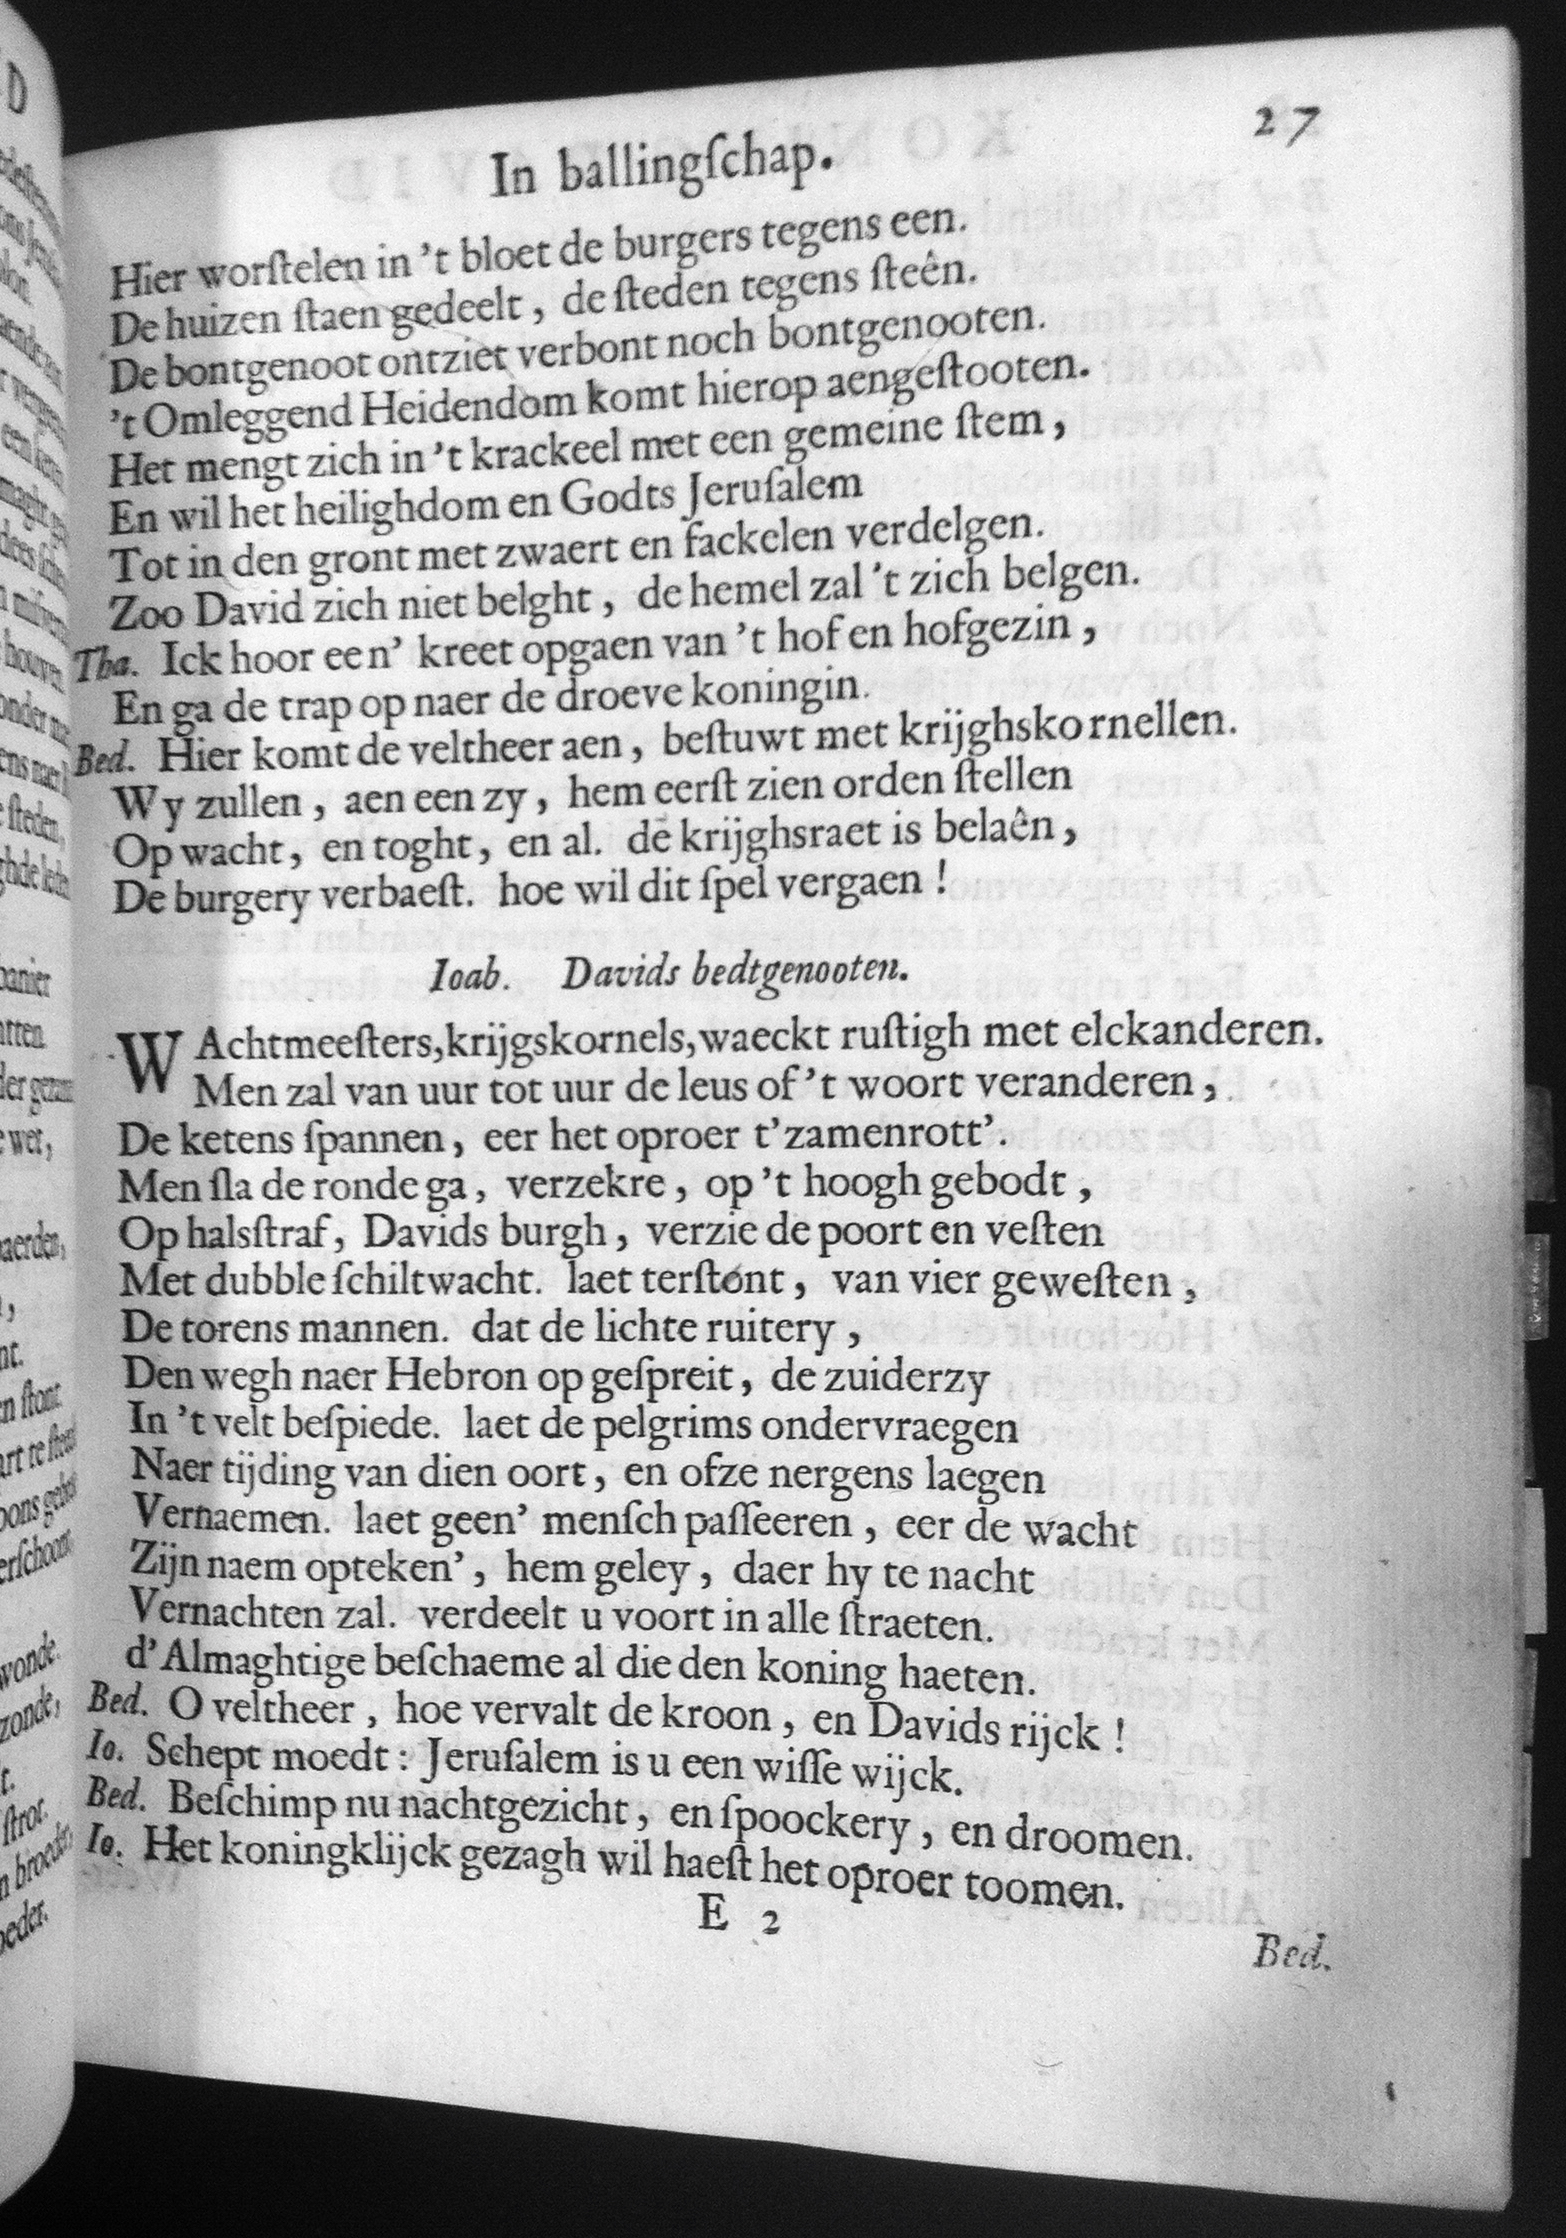 27
In ballingſchap.
Hier worſtelen in 't bloet de burgers tegens een.
De huizen ſtaen gedeelt, de ſteden tegens ſteên.
De bontgenoot ontziet verbont noch bontgenooten.
't Omleggend Heidendom komt hierop aengeſtooten.
Het mengt zich in 't krackeel met een gemeine ſtem,
En wil het heilighdom en Godts Jeruſalem
Tot in den gront met zwaert en fackelen verdelgen.
Zoo David zich niet belght, de hemel zal 't zich belgen.
Tha. Ick hoor een' kreet opgaen van 't hof en hofgezin,
En ga de trap op naer de droeve koningin.
Bed. Hier komt de veltheer aen, beſtuwt met krijghskornellen.
Wy zullen, aen een zy, hem eerſt zien orden ſtellen
Op wacht, en toght, en al. de krijghsraet is belaên,
De burgery verbaeſt. hoe wil dit ſpel vergaen!
Ioab. Davids bedtgenooten.
WAchtmeeſters, krijgskornels, waeckt ruſtigh met elckanderen.
Men zal van uur tot uur de leus of 't woort veranderen,
De ketens ſpannen, eer het oproer t'zamenrott'.
Men ſla de ronde ga, verzekre, op 't hoogh gebodt,
Op halsſtraf, Davids burgh, verzie de poort en veſten
Met dubble ſchiltwacht. laet terſtont, van vier geweſten,
De torens mannen. dat de lichte ruitery,
Den wegh naer Hebron op geſpreit, de zuiderzy
In 't velt beſpiede. laet de pelgrims ondervraegen
Naer tijding van dien oort, en ofze nergens laegen
Vernaemen. laet geen' menſch paſſeeren, eer de wacht
Zijn naem opteken', hem geley, daer hy te nacht
Vernachten zal. verdeelt u voort in alle ſtraeten.
d'Almaghtige beſchaeme al die den koning haeten.
Bed. O veltheer, hoe vervalt de kroon, en Davids rijck!
Io. Schept moedt: Jeruſalem is u een wiſſe wijck.
Bed. Beſchimp nu nachtgezicht, en ſpoockery, en droomen.
Io. Het koningklijck gezagh wil haeſt het oproer toomen.
E 2
Bed.